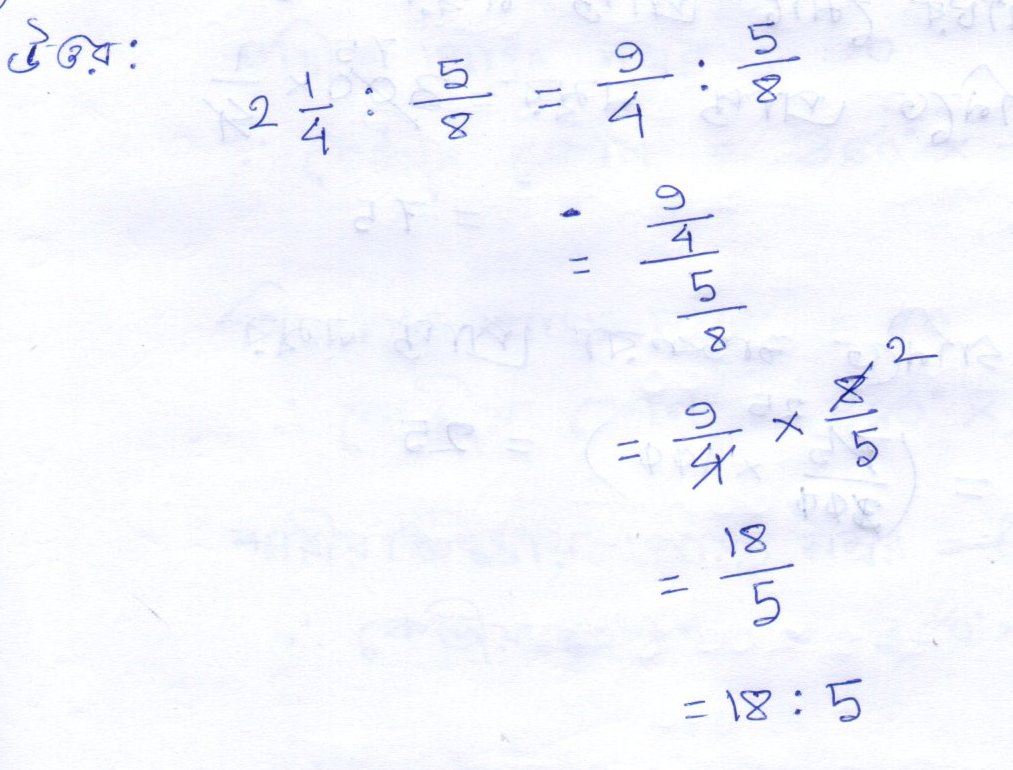 উত্তর:
2 1/4 : 5/8 = 9/4 : 5/8
= 9/4 / 5/8
= 9/4 × 8/5 2
= 18/5
= 18 : 5